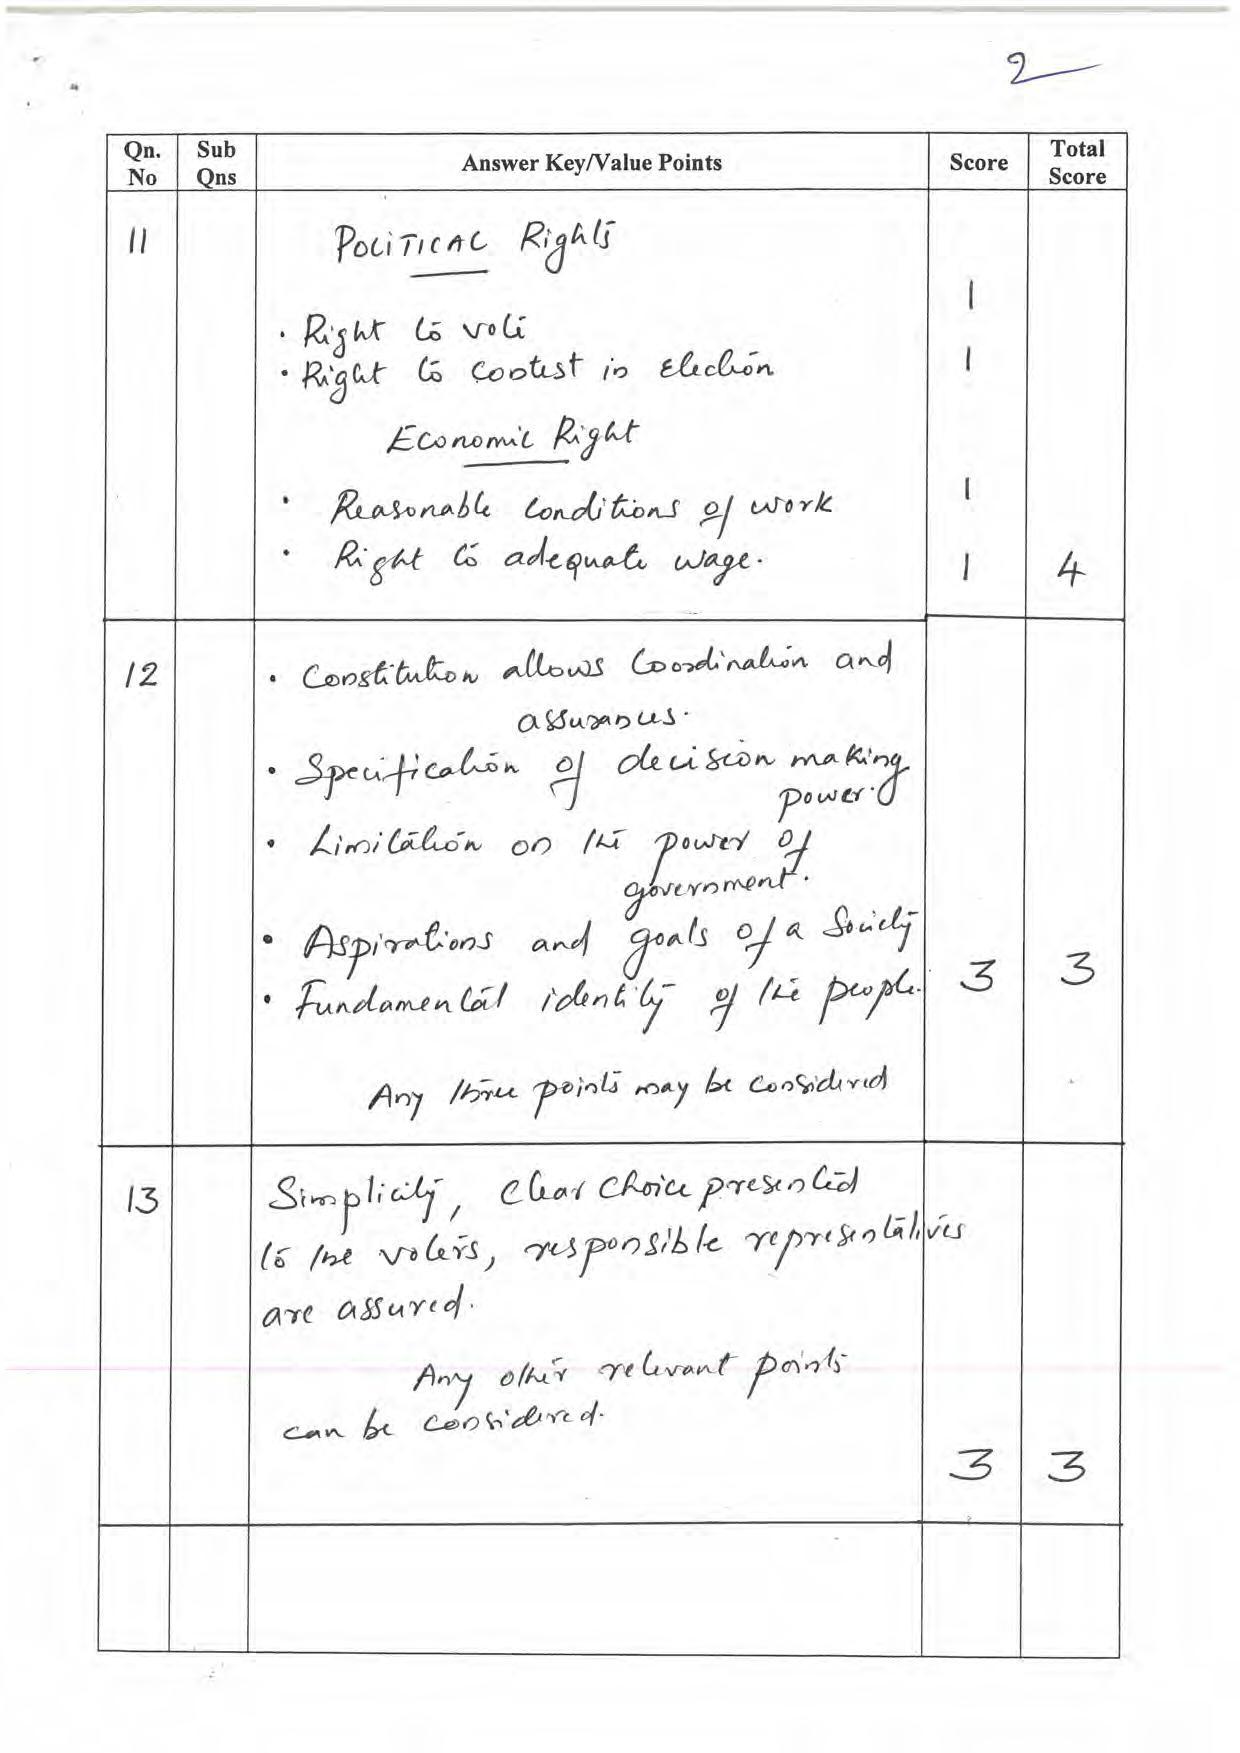 2
Qn. No Sub Qns Answer Key/Value Points Score Total Score
11 POLITICAL Rights
1
• Right to vote
• Right to contest in Election 1
Economic Right
• Reasonable conditions of work 1
• Right to adequate wage. 1 4
12 • Constitution allows Coordination and
assurances.
• Specification of decision making
power.
• Limitation on the power of
government.
• Aspirations and goals of a Society
• Fundamental identity of the people. 3 3
Any three points may be considered
13 Simplicity, Clear Choice presented
to the voters, responsible representatives
are assured.
Any other relevant points
can be considered.
3 3